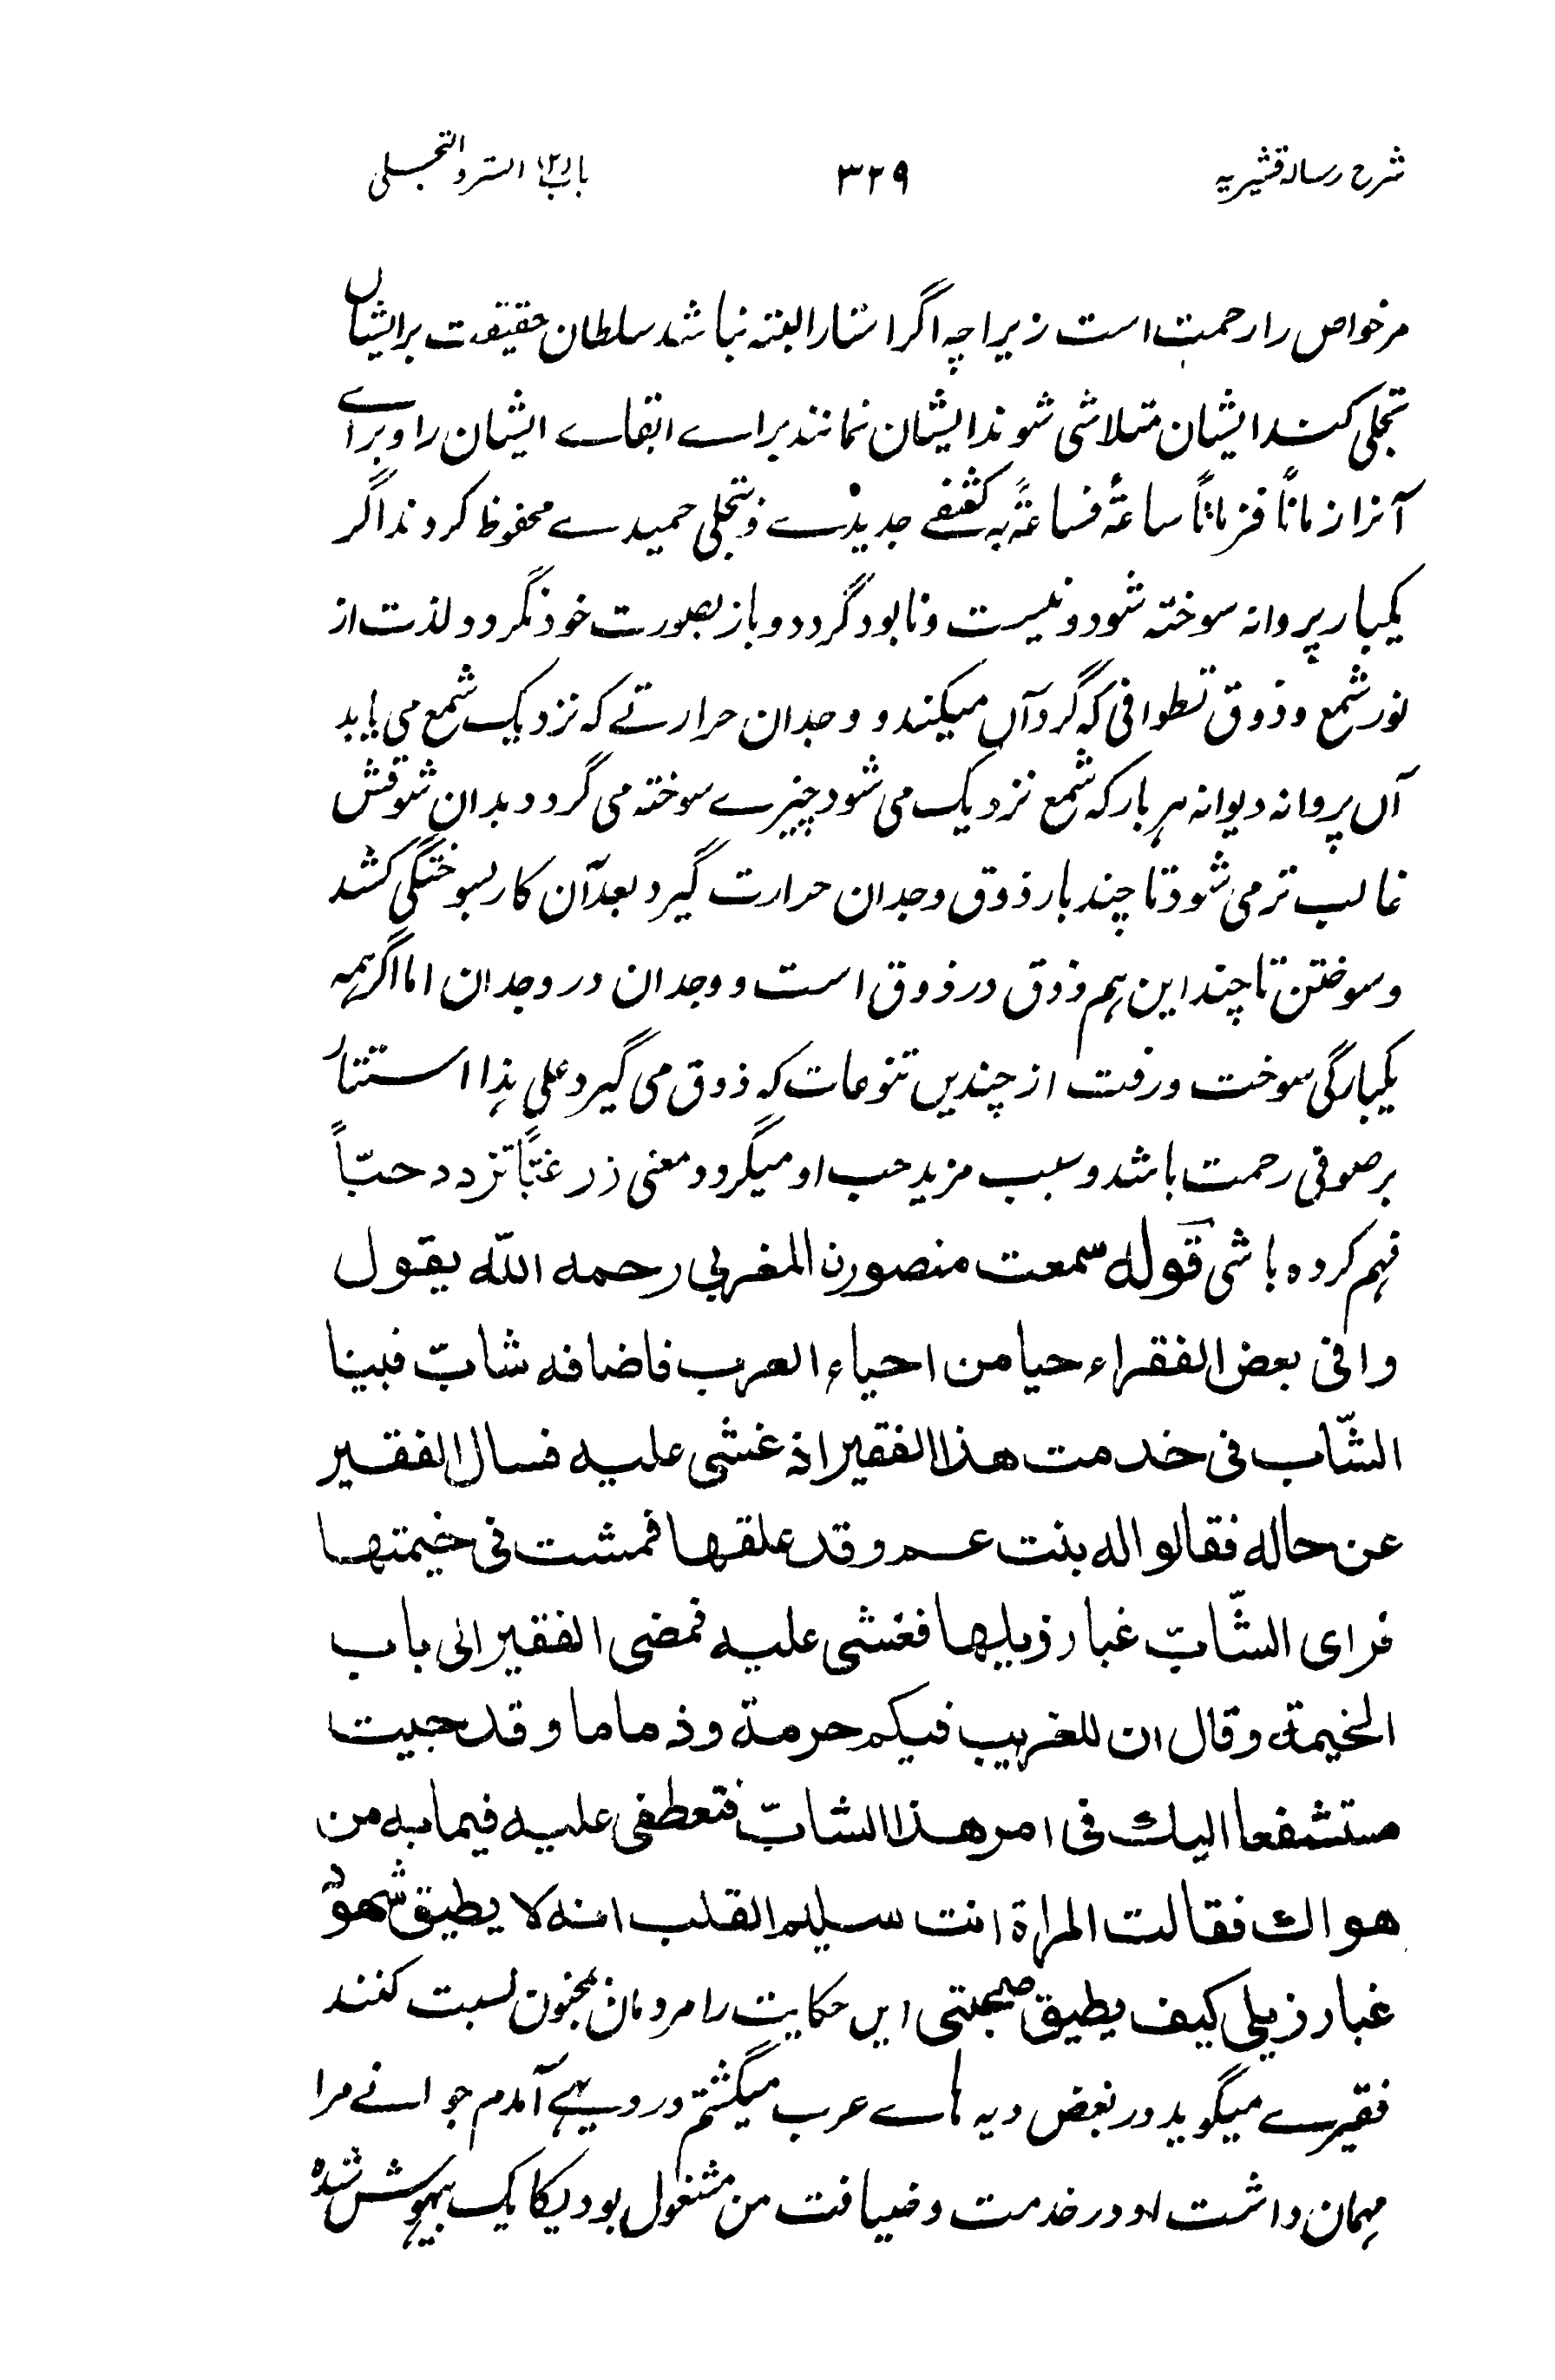 شرح رسالہ قشیریہ ۳۲۹ باب (۱۲) الستر والتجلی
مرخواص را رحمت است زیراچہ اگر استتار البتہ نباشد سلطان حقیقت بر ایشاں
تجلی کند ایشان متلاشی شوند ایشان نمانند براے ابقاے ایشان را و براے
آنرا زماناً فزماناً ساعۃً فساعۃً بہ کشفے جدیدے و تجلی حمیدے محفوظ کردند اگر
یکبار پروانہ سوختہ شود و نیست و نابود گردد و باز بصورت خود نگردد لذت از
نور شمع و ذوق تطوافی کہ گرد آں میکند و وجدان حرارتے کہ نزدیک شمع می یابد
آں پروانہ دیوانہ ہر بار کہ شمع نزدیک می شود چیزے سوختہ می گردد بدان شوقش
غالب تر می شود تا چند بار ذوق وجدان حرارت گیرد بعد آن کار بسوختگی کشد
و سوختن تا چند این ہم ذوق در ذوق است و وجدان در وجدان اما اگر ہمہ
یکبارگی سوخت و رفت از چندیں تنوعات کہ ذوق می گیرد علی ہذا استتار
بر صوفی رحمت باشد و سبب مزید حب او میگردد معنی زر غبّاً تزدد حبّاً
فہم کردہ باشی قولہ سمعت منصورن المغربی رحمہ اللہ یقول
وافی بعض الفقراء حیا من احیاء العرب فاضافہ شابّ فبینا
الشّاب فی خدمت ھذا الفقیر اذ غشی علیہ فسال الفقیر
عن حالہ فقالوا لہ بنت عم وقد علقھا فمشت فی خیمتھا
فرای الشّابّ غبار ذیلھا فغشی علیہ فمضی الفقیر الی باب
الخیمۃ وقال ان للغریب فیکم حرمۃ وذماما وقد جیت
مستشفعا الیک فی امر ھذا الشابّ فتعطفی علیہ فیما بہ من
ھواک فقالت المراۃ انت سلیم القلب انہ لا یطیق شھود
غبار ذیلی کیف یطیق صحبتی ایں حکایت را مردمان بمجنون نسبت کنند
فقیرے میگوید در بعض دیہ ہاے عرب میگشتم در دیہے آمدم جوانے مرا
مہمان داشت او در خدمت و ضیافت من مشغول بود یکایک بیہوش شدہ